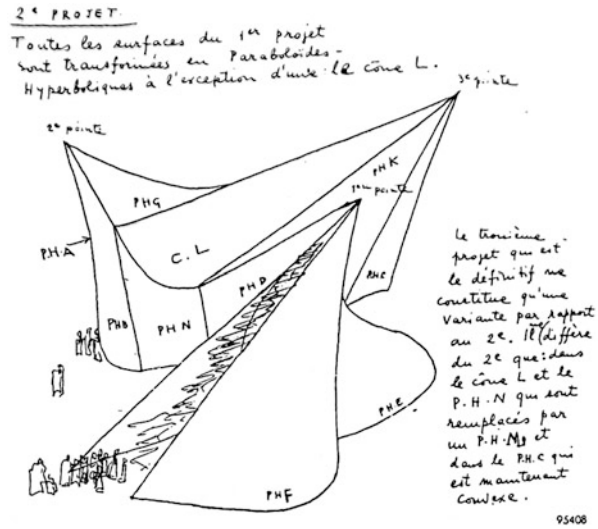 2e PROJET.
Toutes les surfaces du 1er projet
sont transformées en Paraboloïdes-
Hyperboliques à l'exception d'une le cône L.
3e pointe
2e pointe
PHK
1ere pointe
PHG
P.H.A
C.L
PHC
PHD
PHB
PHN
PHE
PHF
Le troisième
projet qui est
le définitif ne
constitue qu'une
variante par rapport
au 2e. Il ne diffère
du 2e que: dans
le cône L et le
P.H.N qui sont
remplacés par
un P.H. et
dans le P.H.C qui
est maintenant
convexe.
95408